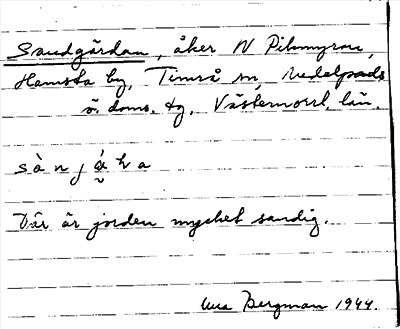 Sandgärdan, åker N Pilnmyran,
Hamsta by, Timrå sn, Medelpads
ö. doms. tg, Västernorrl. län.
Där är jorden mycket sandig.
Bergman 1944.